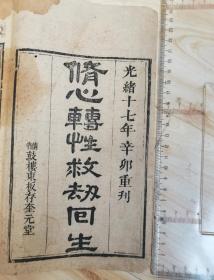 光緒十七年辛卯重刊
脩心轉性救劫回生
鼓樓東板存奎元堂